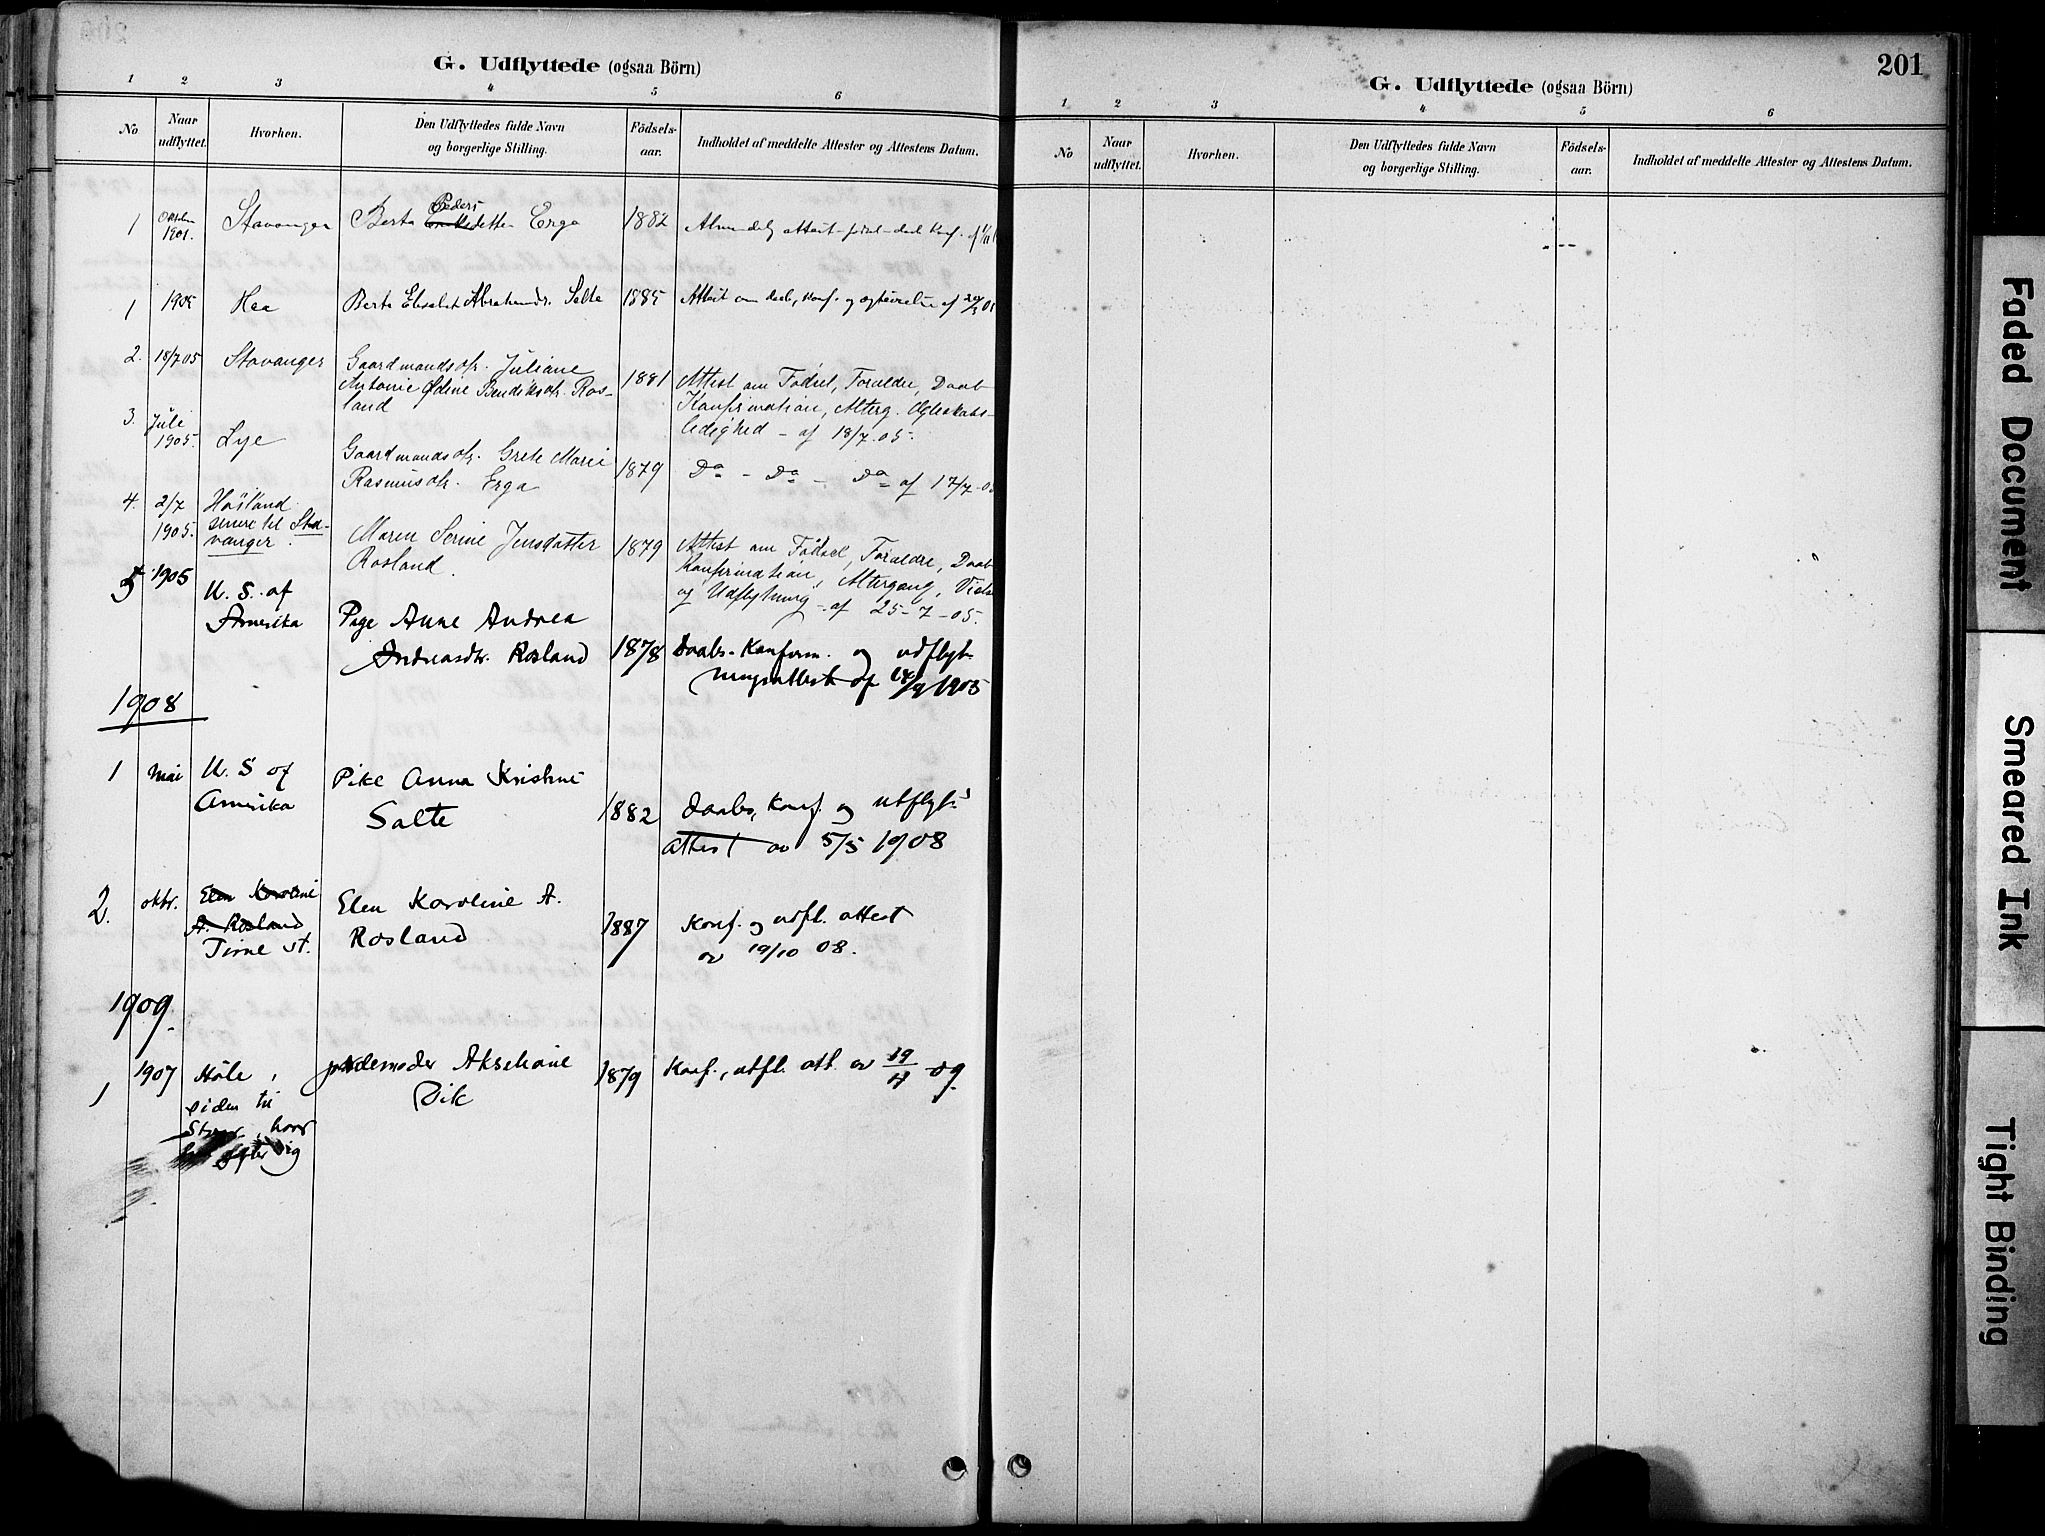 G. Udflyttede (ogsaa Börn)
1 2 3 4 5 6
No
Naar udflyttet.
Hvorhen.
Den Udflyttedes fulde Navn
og borgerlige Stilling.
Födsels-
aar.
Indholdet af meddelte Attester og Attestens Datum.
1 1901. Stavanger Berta Peders datter Erga 1882 Almindelig attest
1 1905 Haa Berte Elisabet Abrahamsdr. Salte 1885 Attest om daab, konf. og
2. 18/7 05 Stavanger Gaardmandsdtr. Juliane
Antonie Ødine Bendiksdtr. Ros-
land
1881 Attest om Fødsel, Forældre, Daab
Konfirmation, Alterg. Ægteskabs-
ledighed - af 18/7 05.
3. Juli
1905. Lye Gaardmandsdtr. Grete Marie
Rasmusdtr. Erga
1879 Do - Do - Do af 17/7-05
4. 2/7
1905. Høiland
senere til Sta-
vanger.
Maren Serine Jensdatter
Rosland.
1879 Attest om Fødsel, Forældre, Daab
Konfirmation, Altergang,
og Udflytning - af 25-7-05.
5 1905 U. S. af
Amerika
Pige Anne Andrea
Andreasdtr. Rosland
1878 Daabs- Konfirm. og udflyt-
ningsattest af /9 1905
1908
1 mai U. S of
Amerika
Pike Anna Kristine
Salte
1882 daabs, konf. og utflyt.s
attest av 5/5 1908
2. oktr. Elen Karoline
A. Rosland
Time st.
Elen Karoline A.
Rosland
1887 Konf. og udfl. attest
av 19/10 08.
1909.
1 1907 Høle,
siden til
hvor
efter sig
jordemoder Akseliane
Vik
1879 Konf., utfl. att. av 09.
G. Udflyttede (ogsaa Börn)
201
1 2 3 4 5 6
No
Naar
udflyttet.
Hvorhen.
Den Udflyttedes fulde Navn
og borgerlige Stilling.
Födsels-
aar.
Indholdet af meddelte Attester og Attestens Datum.
Faded Document
Smeared Ink
Tight Binding